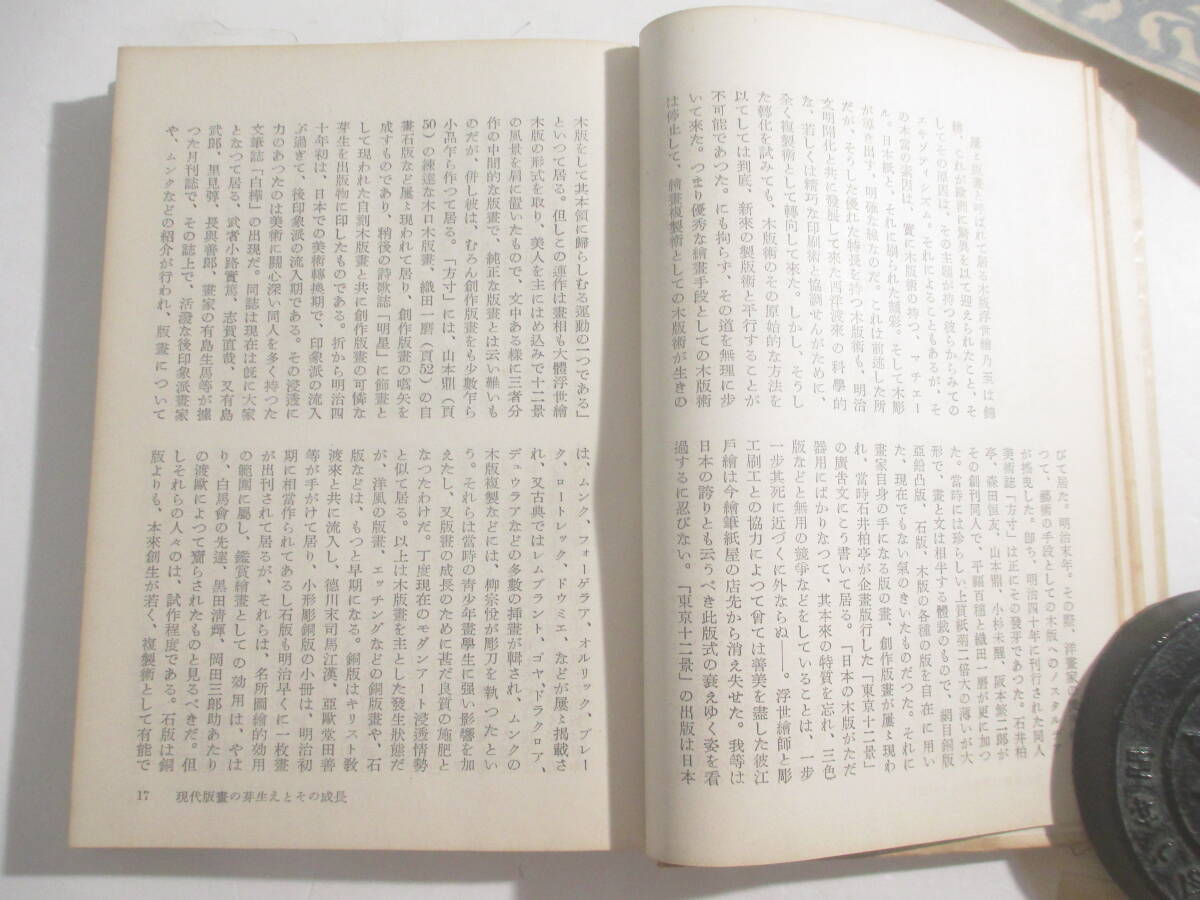 屢々版畫と呼ばれて居る木版浮世繪乃至は錦
繪、これが歐術に驚きを以て迎えられたこと、そ
してその原因は、その主題が持つ彼らからみての
エキゾティシズム。それによることもあるが、そ
の本當の素因は、實に木版術の持つ、マチエー
ル。日本紙と、それに刷られた顏彩。そして木彫
が導き出す、明確な線なのだ。これは前述した所
だが、そうした優れた特長を持つ木版術も、明治
文明開化と共に發展して來た西洋渡來の科學的
な、若しくは精巧な印刷術と協調せんがために、
全く複製術として轉向して來た。しかし、そうし
た轉化を試みても、木版術のその原始的な方法を
以てしては到底、新來の製版術と平行することが
不可能であつた。にも拘らず、その道を無理に步
いて來た。つまり優秀な繪畫手段としての木版術
は停止して、繪畫複製術としての木版術が生きの
びて居た。明治末年。その際、洋畫家の
つて、藝術の手段としての木版へのノスタルヂア
が擡頭した。卽ち、明治四十年に刊行された同人
美術誌「方寸」は正にその發芽であつた。石井柏
亭、森田恒友、山本鼎、小杉未醒、阪本繁二郎が
その創刊同人で、平福百穗と織田一磨が更に加つ
た。當時には珍らしい上質紙菊二倍大の薄いが大
形で、畫と文は相半する體裁のもので、網目銅版
亞鉛凸版、石版、木版の各種の版を自在に用い
た、現在でもない氣のきいたものだつた。それに
畫家自身の手になる版の畫、創作版畫が屢々現わ
れ、當時石井柏亭が企畫版行した「東京十二景」
の廣吿文にこう書いて居る。「日本の木版がただ
器用にばかりなつて、其本來の特質を忘れ、三色
版などと無用の競爭などをしていることは、一步
一步其死に近づくに外ならぬ――。浮世繪師と彫
工刷工との協力によつて曾ては善美を盡した彼江
戶繪は今繪筆紙屋の店先から消え失せた。我等は
日本の誇りとも云うべき此版式の衰えゆく姿を看
過するに忍びない。「東京十二景」の出版は日本
木版をして其本領に歸らしむる運動の一つである」
といつて居る。但しこの連作は畫相も大體浮世繪
木版の形式を取り、美人を主にはめ込みで十二景
の風景を肩に置いたもので、文中ある樣に三者分
作の中間的な版畫で、純正な版畫とは云い難いも
のだが、併し彼は、むろん創作版畫をも少數乍ら
小品乍ら作つて居る。「方寸」には、山本鼎（頁
50）の練達な木口木版畫、織田一磨（頁52）の自
畫石版など屢々現われて居り、創作版畫の嚆矢を
成すものであり、稍後の詩歌誌「明星」に飾畫と
して現われた自刻木版畫と共に創作版畫の可憐な
芽生を出版物に印したものである。折から明治四
十年初は、日本での美術轉換期で、印象派の流入
ぶ過ぎて、後印象派の流入期である。その浸透に
力のあつたのは美術に關心深い同人を多く持つた
文筆誌「白樺」の出現だ。同誌は現在は旣に大家
となつて居る、武者小路實篤、志賀直哉、又有島
武郎、里見弴、長與善郎、畫家の有島生馬等が據
つた月刊誌で、その誌上で、活潑な後印象派畫家
や、ムンクなどの紹介が行われ、版畫について
は、ムンク、フォーゲラア、オルリック、ブレー
ク、ロートレック、ドウミエ、などが屢々揭載さ
れ、又古典ではレムブラント、ゴヤ、ドラクロア、
デュウラアなどの多數の揷畫が輯され、ムンクの
木版複製などには、柳宗悅が彫刀を執つたとい
う。それらは當時の靑少年畫學生に强い影響を加
えたし、又版畫の成長のために甚だ良質の施肥と
なつたわけだ。丁度現在のモダンアート浸透情勢
と似て居る。以上は木版畫を主とした發生狀態だ
が、洋風の版畫、エッチングなどの銅版畫や、石
版などは、もつと早期になる。銅版はキリスト敎
渡來と共に流入し、德川末司馬江漢、亞歐堂田善
等が手がけて居り、小形彫銅版の小冊は、明治初
期に相當作られてあるし石版も明治早くに一枚畫
が出刊されて居るが、それらは、名所圖繪的効用
の範圍に屬し、鑑賞繪畫としての効用は、やは
り、白馬會の先達、黑田淸輝、岡田三郎助あたり
の渡歐によつて齎らされたものと見るべきだ。但
しそれらの人々のは、試作程度である。石版は銅
版よりも、本來創生が若く、複製術として有能で
17　現代版畫の芽生えとその成長